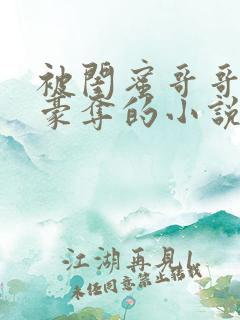 被閨蜜哥哥
豪奪的小說
江湖再見|
未经同意禁止转载